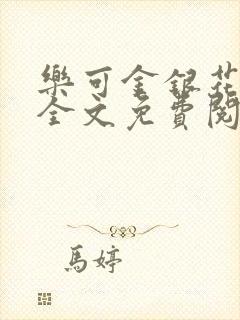 樂可金銀花
全文免費閱
馬婷